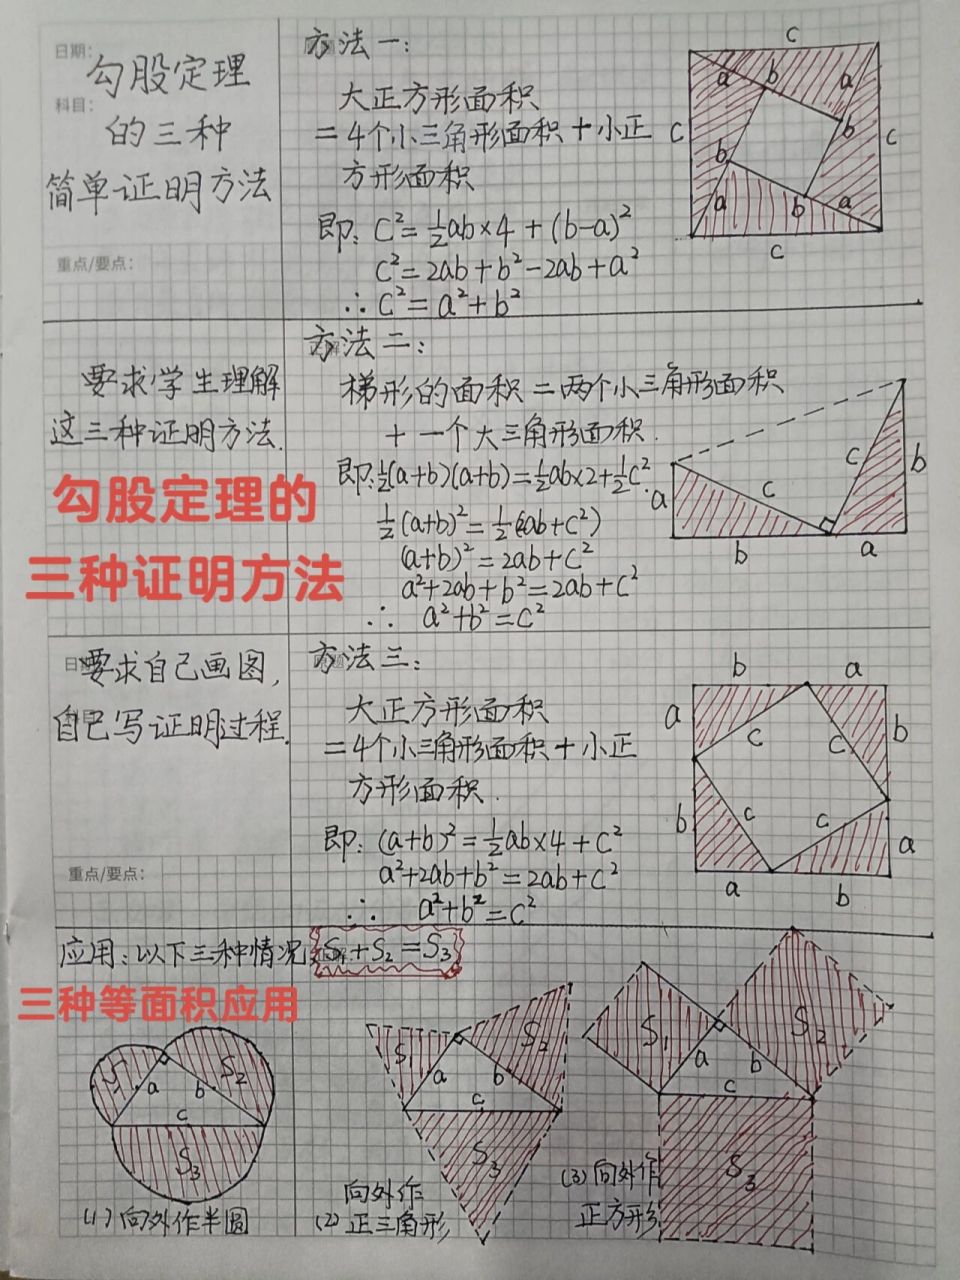 日期:
科目:
勾股定理
的三种
简单证明方法
重点/要点:
方法一:
大正方形面积
=4个小三角形面积+小正
方形面积
即: C²=½ab×4+(b-a)²
C²=2ab+b²-2ab+a²
∴C²=a²+b²
c
a
b
a
c
b
c
b
a
b
a
c
要求学生理解
这三种证明方法.
勾股定理的
三种证明方法
方法二:
梯形的面积=两个小三角形面积
+一个大三角形面积.
即:½(a+b)(a+b)=½ab×2+½C².
½(a+b)²=½(2ab+C²)
(a+b)²=2ab+C²
a²+2ab+b²=2ab+C²
∴ a²+b²=C²
c
b
a
c
b
a
要求自己画图,
自己写证明过程.
重点/要点:
方法三:
大正方形面积
=4个小三角形面积+小正
方形面积.
即: (a+b)²=½ab×4+C²
a²+2ab+b²=2ab+C²
∴ a²+b²=C²
b
a
a
c
c
b
b
c
c
a
a
b
应用:以下三种情况 S₁+S₂=S₃
三种等面积应用
S₁
S₂
a
b
c
S₃
(1)向外作半圆
S₁
S₂
a
b
c
S₃
向外作
(2)正三角形
S₁
S₂
a
b
c
S₃
(3)向外作
正方形